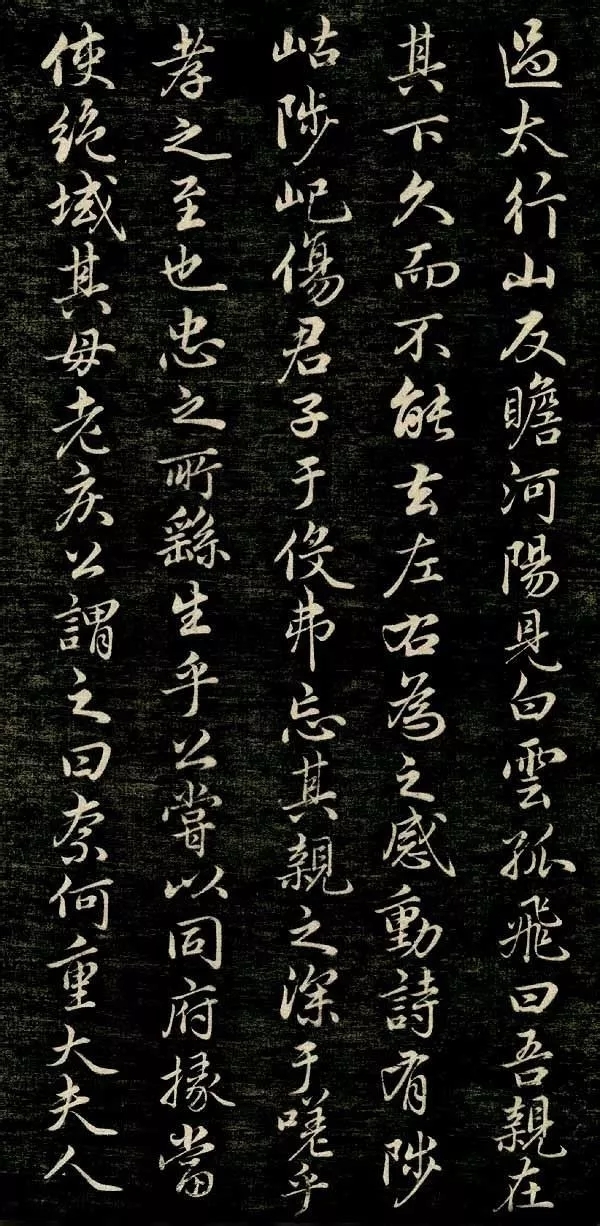 過太行山反瞻河陽見白雲孤飛曰吾親在
其下久而不能去左右為之感動詩有陟
岵陟屺傷君子于役弗忘其親之深于嗟乎
孝之至也忠之所繇生乎公嘗以同府掾當
使絕域其母老疾公謂之曰奈何重大夫人